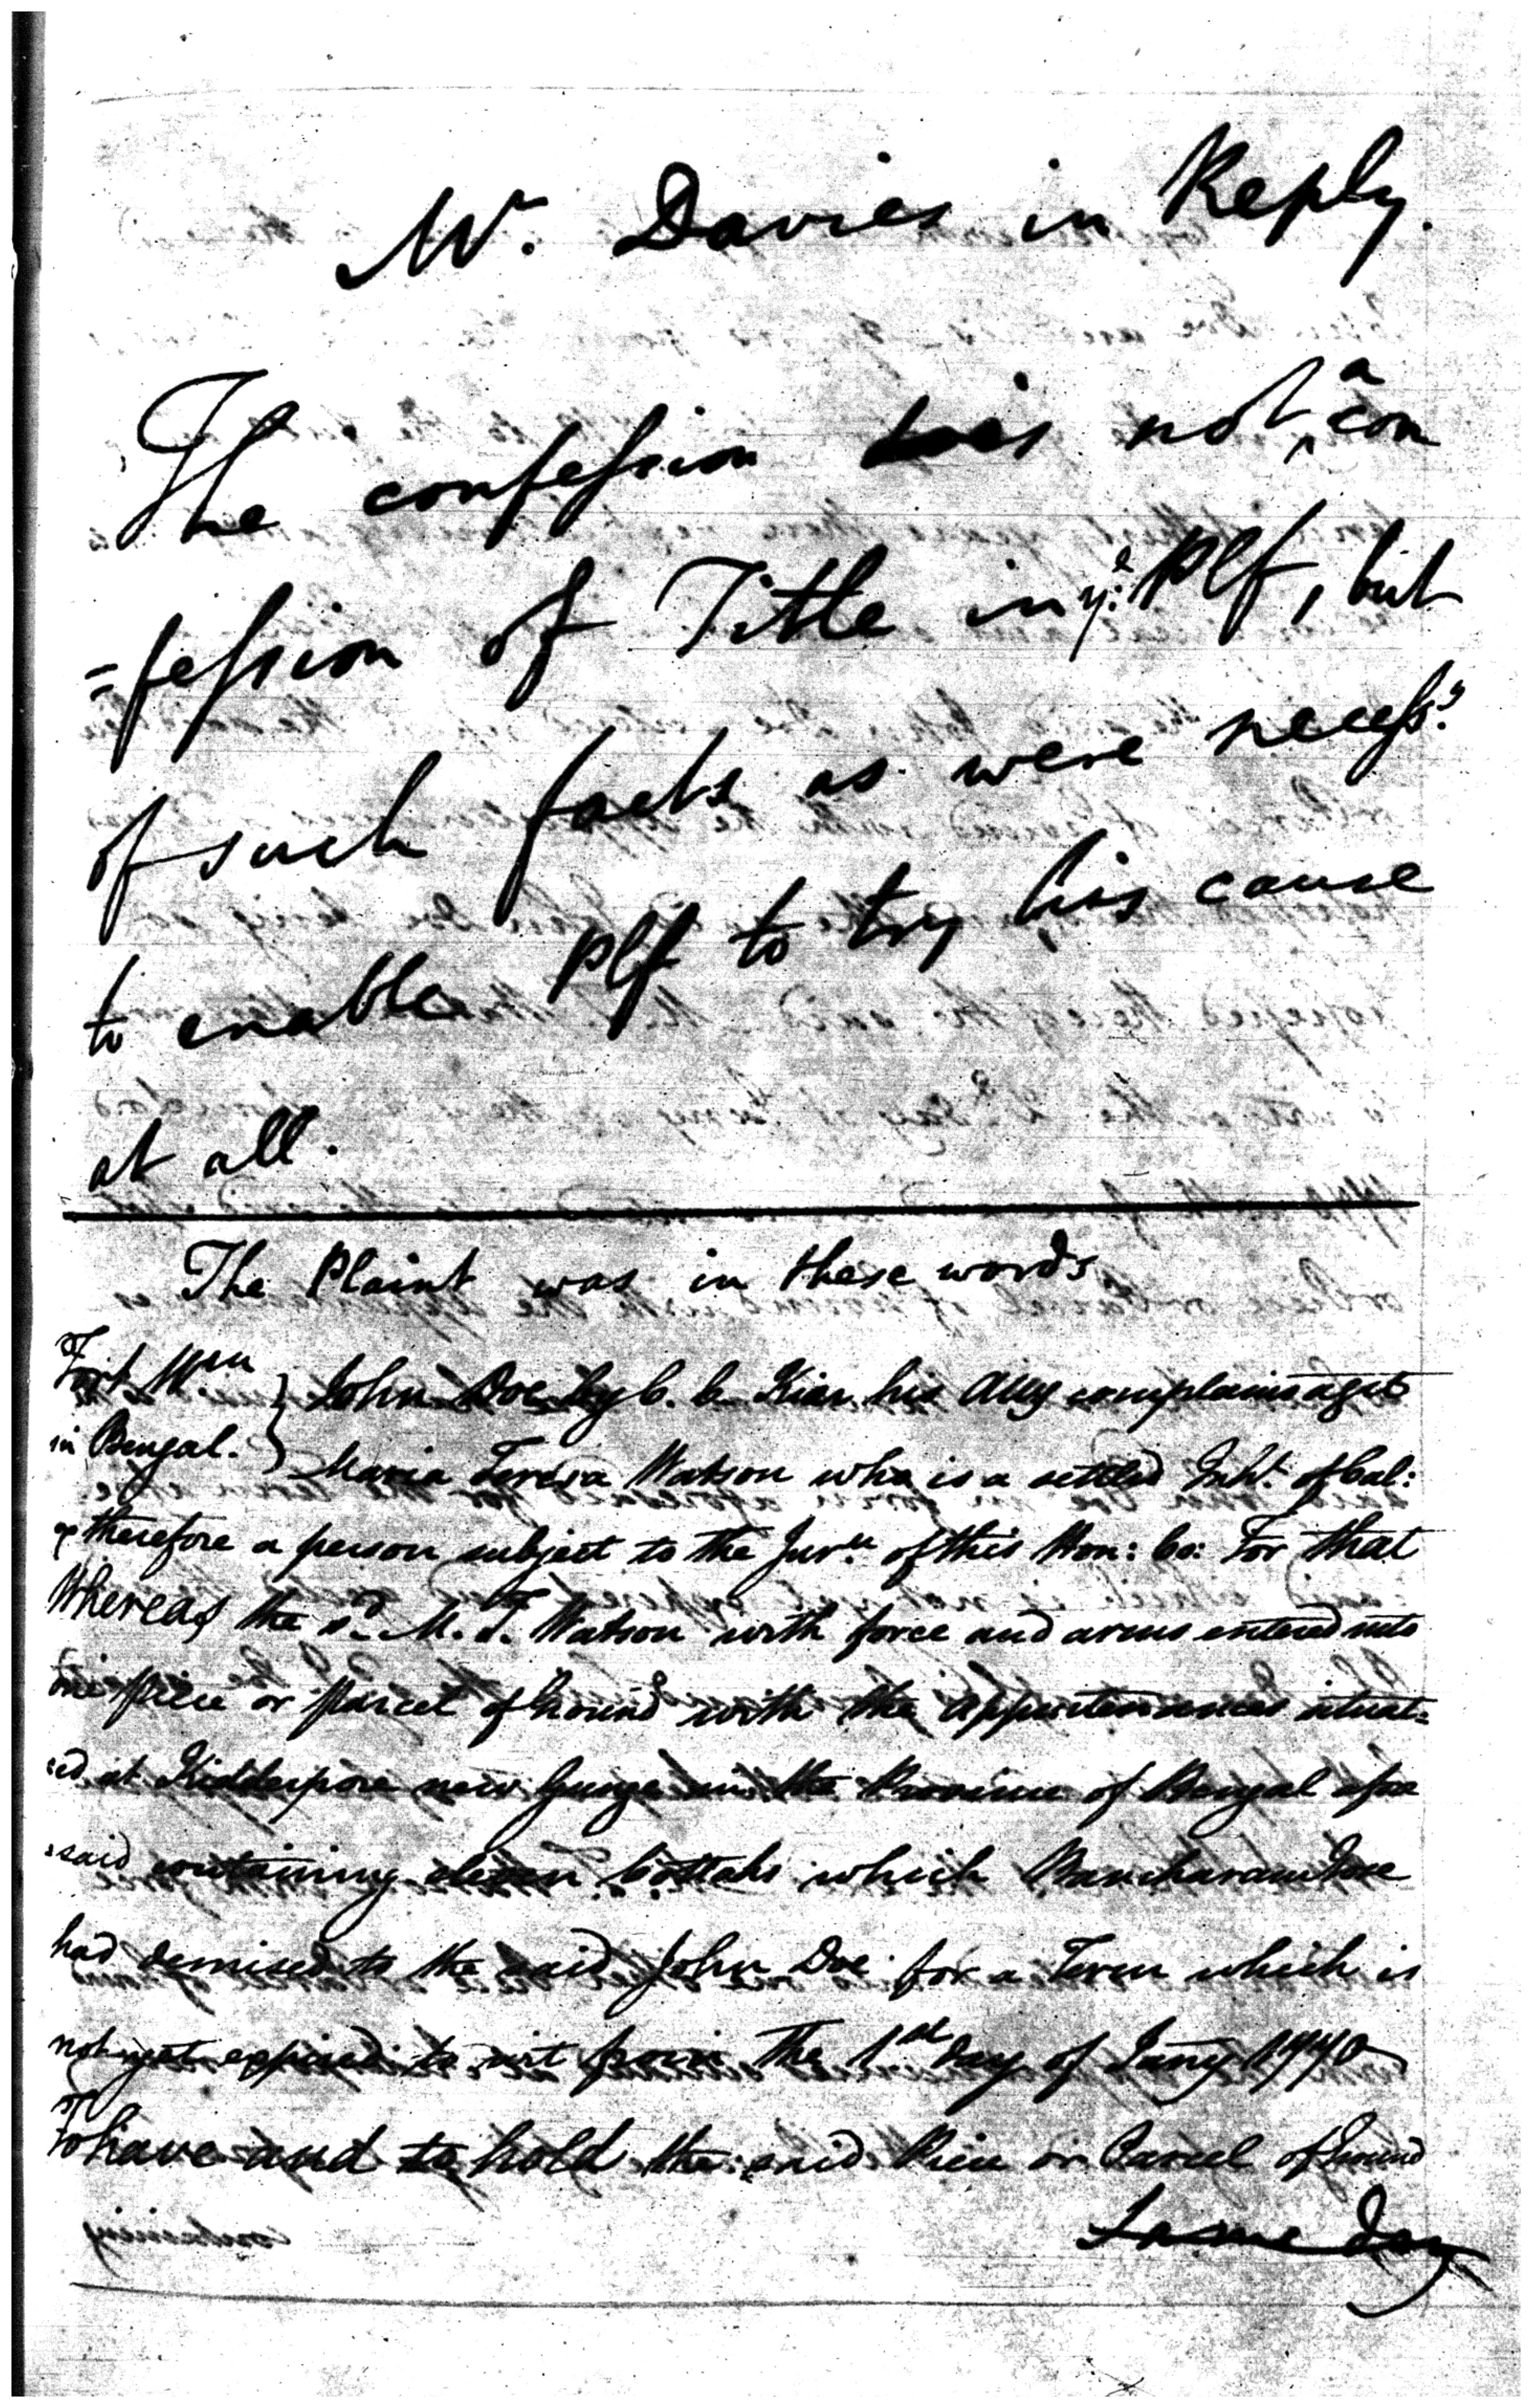 Mr. Davies in Reply.
The confession is not a con
=fession of Title in ye. Plf, but
of such facts as were necessy.
to enable Plf to try his cause
at all.
The Plaint was in these words
Fort Wm
in Bengal. } John Doe by C. C. Kier his Atty complains agst
Maria Teresa Watson who is a settled Inht. of Cal:
& therefore a person subject to the Jurn. of this Hon: Co: For that
Whereas the sd. M. T. Watson with force and arms entered into
one piece or parcel of Ground with the appurtenances situat=
:ed at Kidderpore new Gunge in the Province of Bengal afore
:said containing eleven Cottahs which
had demised to the said John Doe for a Term which is
not yet expired to wit from the 1st day of Jany
To have and to hold the said Piece or Parcel of Ground